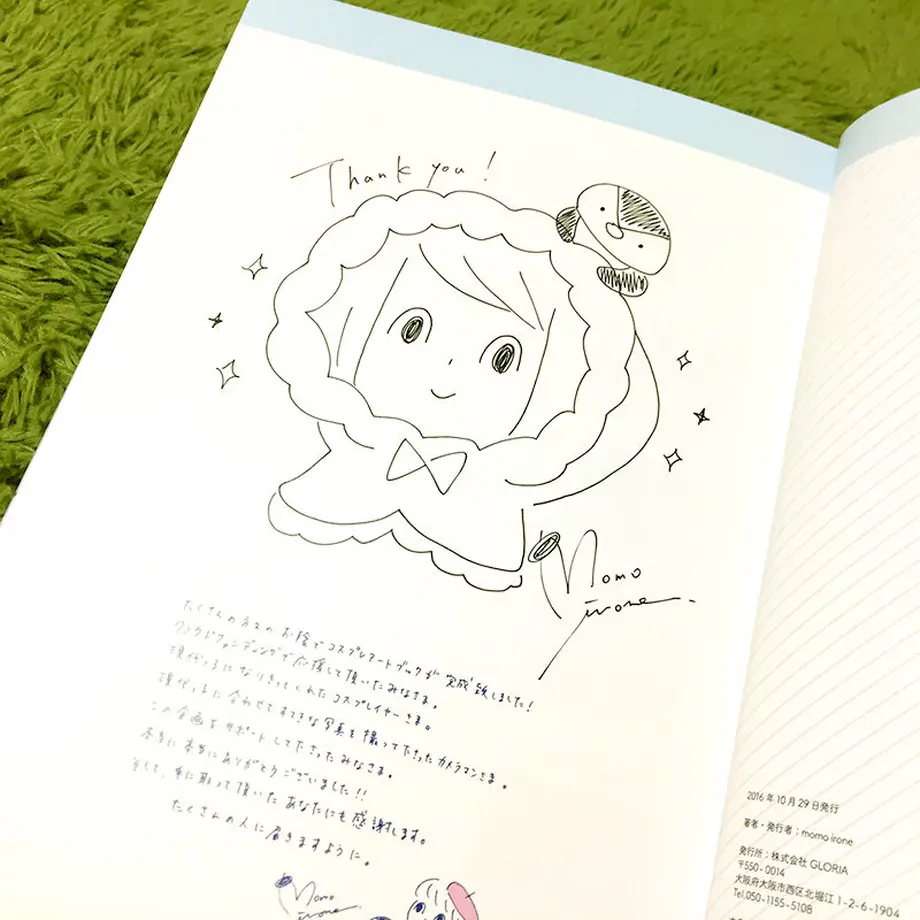 Thank you!
Momo
irone
たくさんの方々のお陰でコスプレアートブックが完成致しました!
クラウドファンディングで応援して頂いたみなさま。
現代っ子になりきってくれたコスプレイヤーさま。
現代っ子に合わせてすてきな写真を撮ってださったカメラマンさま。
この企画をサポートしてださったみなさま。
本当に本当にありがとうございました!!
そして、手に取って頂いたあなたにも感謝します。
たくさんの人に届きますように。
Momo
irone
2016年10月29日発行
著者・発行者:momo irone
発行所:株式会社 GLORIA
〒550-0014
大阪府大阪市西区北堀江1-2-6-1904
Tel.050-1155-5108